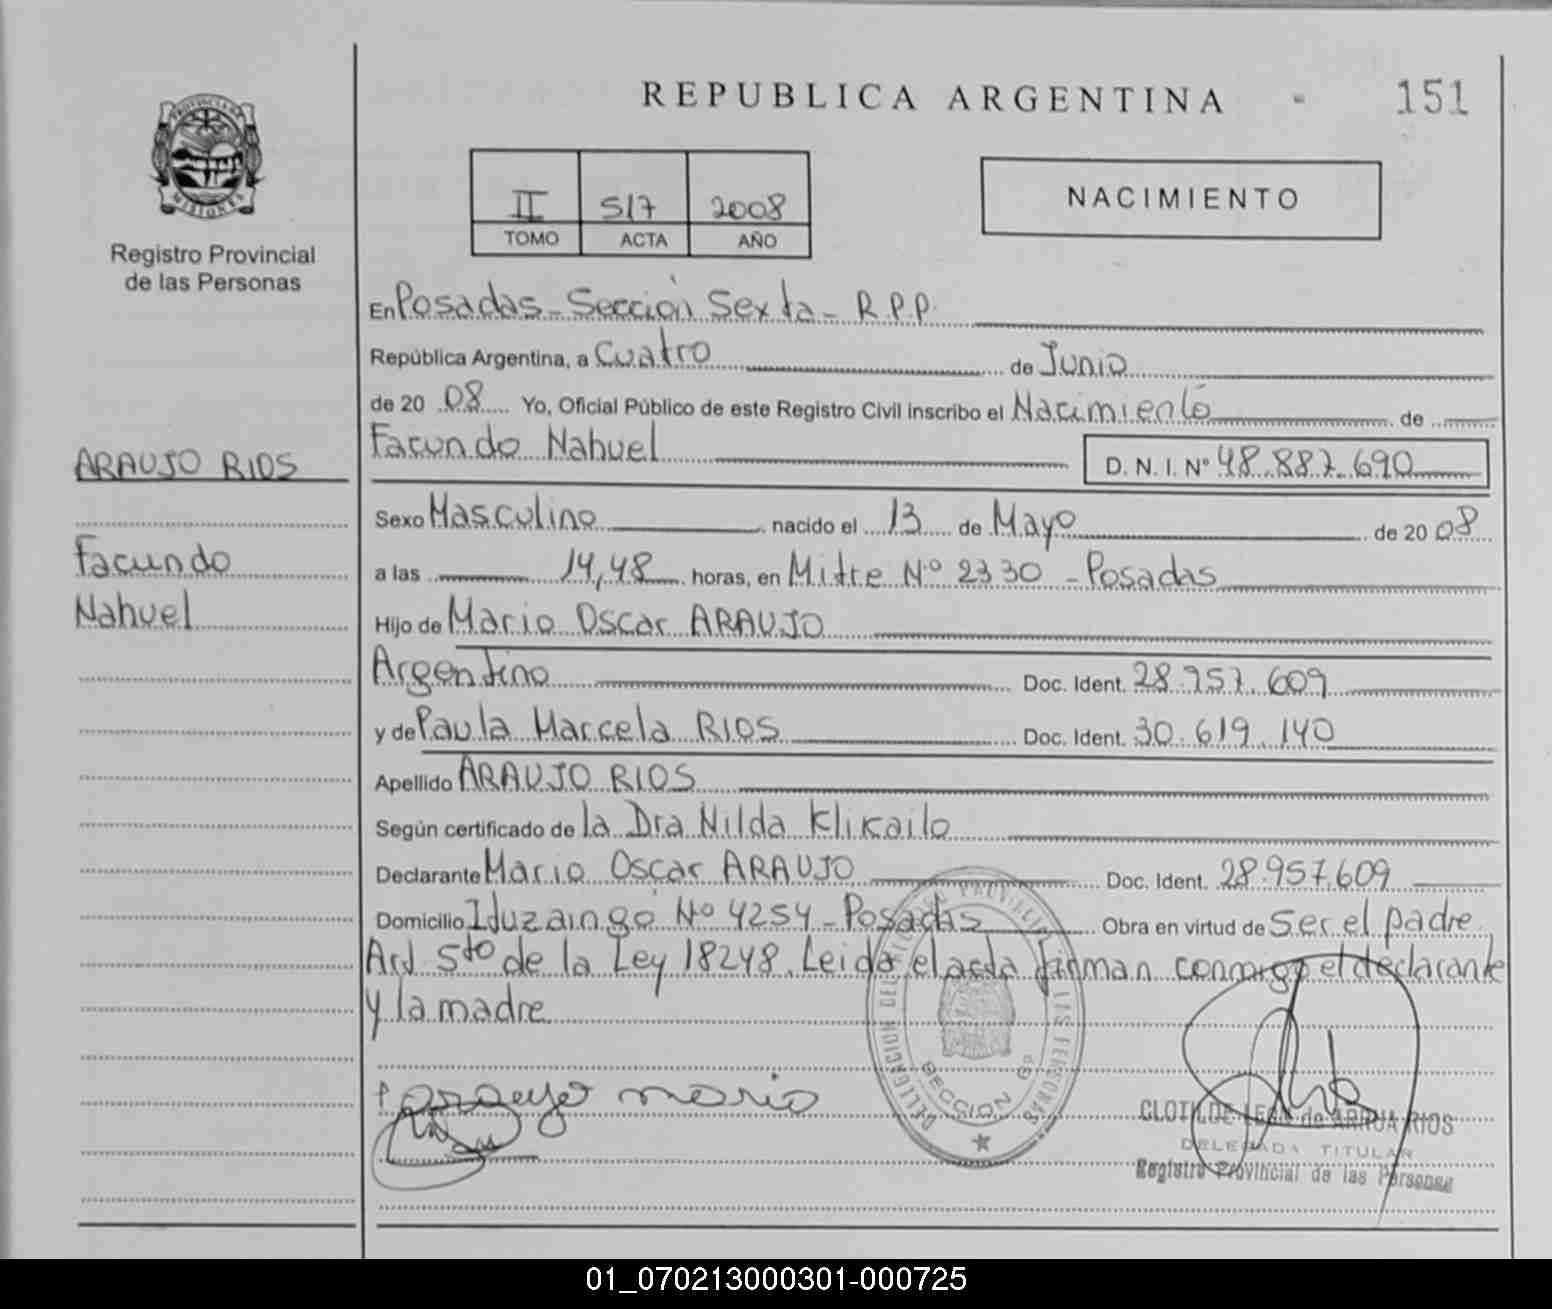 REPUBLICA ARGENTINA
151
PROVINCIA DE
MISIONES
Registro Provincial
de las Personas
II 517 2008
TOMO ACTA AÑO
NACIMIENTO
En Posadas - Sección Sexta - R.P.P.
República Argentina, a Cuatro de Junio
de 20 08 Yo, Oficial Público de este Registro Civil inscribo el Nacimiento de
Facundo Nahuel D. N. I. Nº 48.887.690
ARAUJO RIOS
Facundo
Nahuel
Sexo Masculino nacido el 13 de Mayo de 20 08
a las 14,48 horas, en Mitre Nº 2330 - Posadas
Hijo de Mario Oscar ARAUJO
Argentino Doc. Ident. 28.957.609
y de Paula Marcela RIOS Doc. Ident. 30.619.140
Apellido ARAUJO RIOS
Según certificado de la Dra Nilda Klikailo
Declarante Mario Oscar ARAUJO Doc. Ident. 28.957.609
Domicilio Iduzaingó Nº 4254 - Posadas Obra en virtud de Ser el padre
Art 5to de la Ley 18248. Leida el acta firman conmigo el declarante
y la madre
mario
SECCION 6ª
CLOTILDE de ARRUA RIOS
DELEGADA TITULAR
Registro Provincial de las Personas
01_070213000301-000725